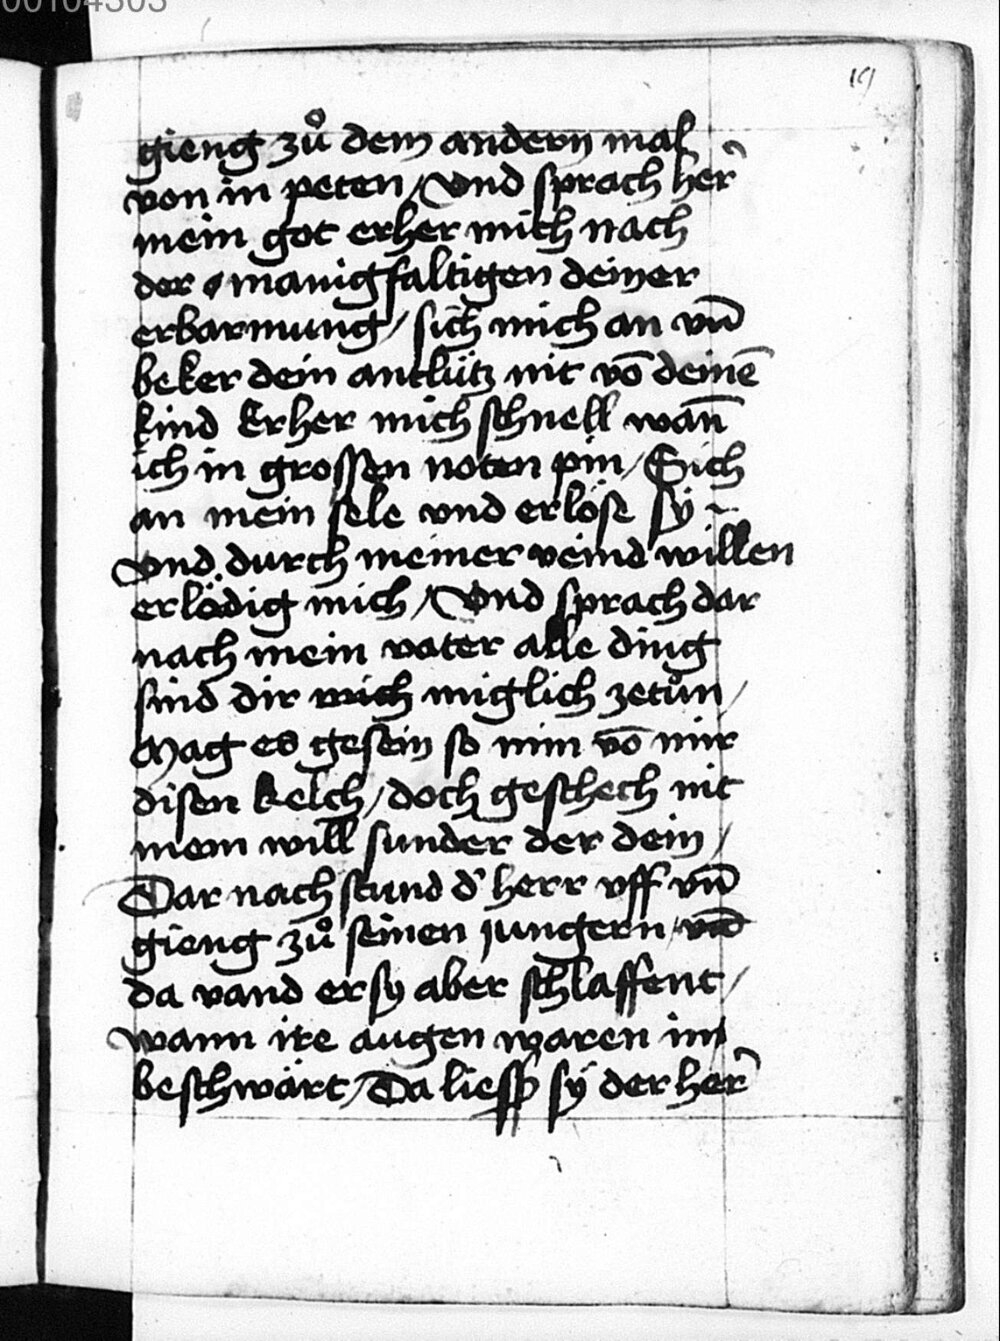 00104303
19
gieng zů dem andern mal
von in peten / Vnd sprach her̾
mein got erher mich nach
der manigfaltigen deiner
erbarmung / sich mich an vn̄
beker dein antlütz nit vō deinē
kind Erher mich schnell wan̄
ich in grossen noten pin / Sich
an mein sele vnd erlöse sÿ
Vnd durch meiner veind willen
erlödig mich / Vnd sprach dar
nach mein vater alle ding
sind dir miglich zetůn /
Mag es gesein so nim vō mir
disen kelch / doch geschech nit
mein will sunder der dein /
Dar nach stund d' herr vff vn̄
gieng zů seinen jungern / vnd
da vand er sy aber schlaffent /
wann ire augen waren in
beschwärt / Da liesß sÿ der her̾